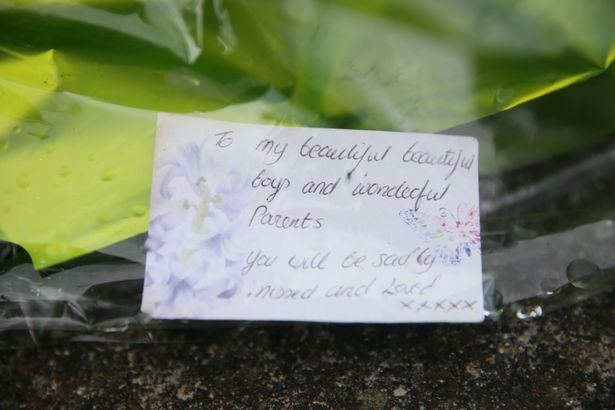 To my beautiful beautiful
boys and wonderful
Parents
You will be sadly
missed and Loved
xxxxx